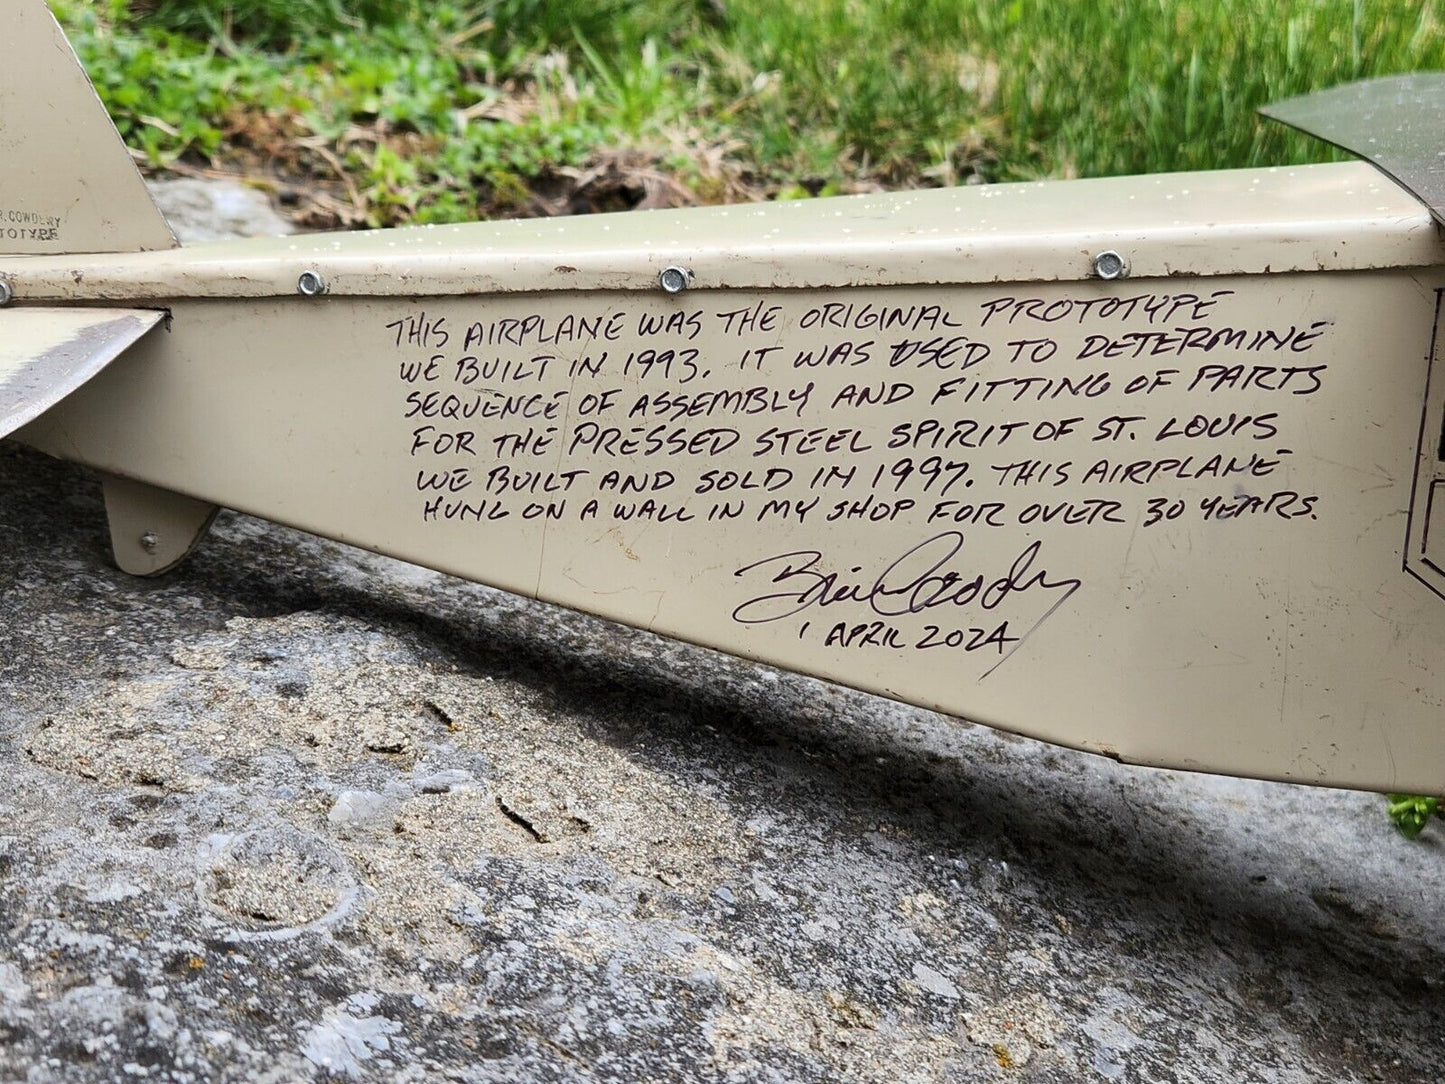 R. COWDERY
PROTOTYPE
THIS AIRPLANE WAS THE ORIGINAL PROTOTYPE
WE BUILT IN 1993. IT WAS USED TO DETERMINE
SEQUENCE OF ASSEMBLY AND FITTING OF PARTS
FOR THE PRESSED STEEL SPIRIT OF ST. LOUIS
WE BUILT AND SOLD IN 1997. THIS AIRPLANE
HUNG ON A WALL IN MY SHOP FOR OVER 30 YEARS.
1 APRIL 2024